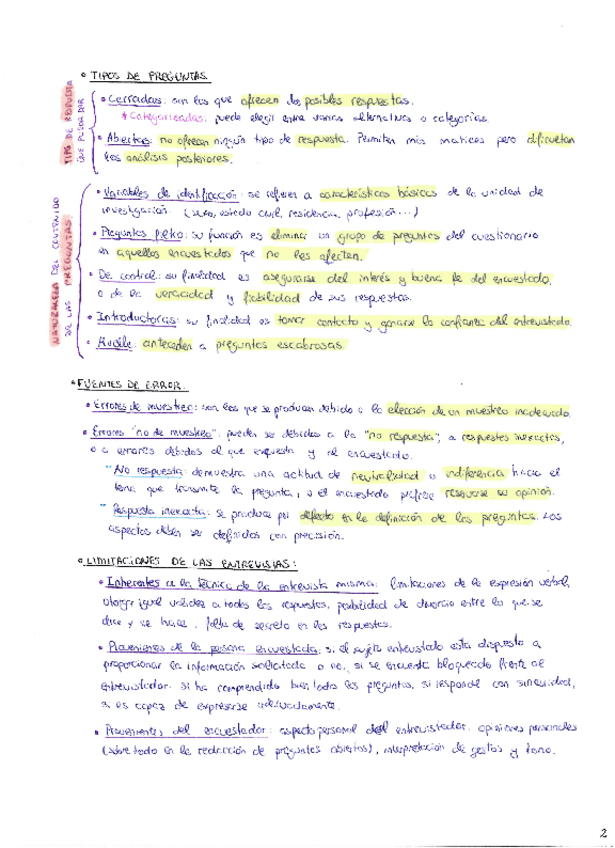 • TIPOS DE PREGUNTAS
TIPO DE RESPUESTA
QUE PUEDEN DAR
• Cerradas: son las que ofrecen dos posibles respuestas.
* Categorizadas: puede elegir entre varias alternativas o categorías.
• Abiertas: no ofrecen ningún tipo de respuesta. Permiten más matices pero dificultan
los análisis posteriores.
NATURALEZA DEL CONTENIDO
DE LAS PREGUNTAS
• Variables de identificación: se refieren a características básicas de la unidad de
investigación. (sexo, estado civil, residencia, profesión...)
• Preguntas filtro: su función es eliminar un grupo de preguntas del cuestionario
en aquellos encuestados que no les afecten.
• De control: su finalidad es asegurarse del interés y buena fe del encuestado,
o de la veracidad y fiabilidad de sus respuestas.
• Introductoras: su finalidad es tomar contacto y ganarse la confianza del entrevistado.
• Muelle: anteceden a preguntas escabrosas.
• FUENTES DE ERROR.
• Errores de muestreo: son los que se producen debido a la elección de un muestreo inadecuado.
• Errores "no de muestreo": pueden ser debidos a la "no respuesta", a respuestas inexactas,
o a errores debidos al que encuesta y al encuestado.
" No respuesta: demuestra una actitud de neutralidad o indiferencia hacia el
tema que transmite la pregunta, o el encuestado prefiere reservarse su opinión.
" Respuesta inexacta: se produce por defecto en la definición de las preguntas. Los
aspectos deben ser definidos con precisión.
• LIMITACIONES DE LAS ENTREVISTAS:
• Inherentes a la técnica de la entrevista misma: limitaciones de la expresión verbal,
otorgar igual validez a todas las respuestas, posibilidad de divorcio entre lo que se
dice y se hace, falta de secreto en las respuestas.
• Provenientes de la persona encuestada: si el sujeto entrevistado está dispuesto a
proporcionar la información solicitada o no, si se encuentra bloqueado frente al
entrevistador. si ha comprendido bien todas las preguntas, si responde con sinceridad,
si es capaz de expresarse adecuadamente.
• Provenientes del encuestador: aspecto personal del entrevistador. opiniones personales
(sobre todo en la redacción de preguntas abiertas), interpretación de gestos y tono.
2